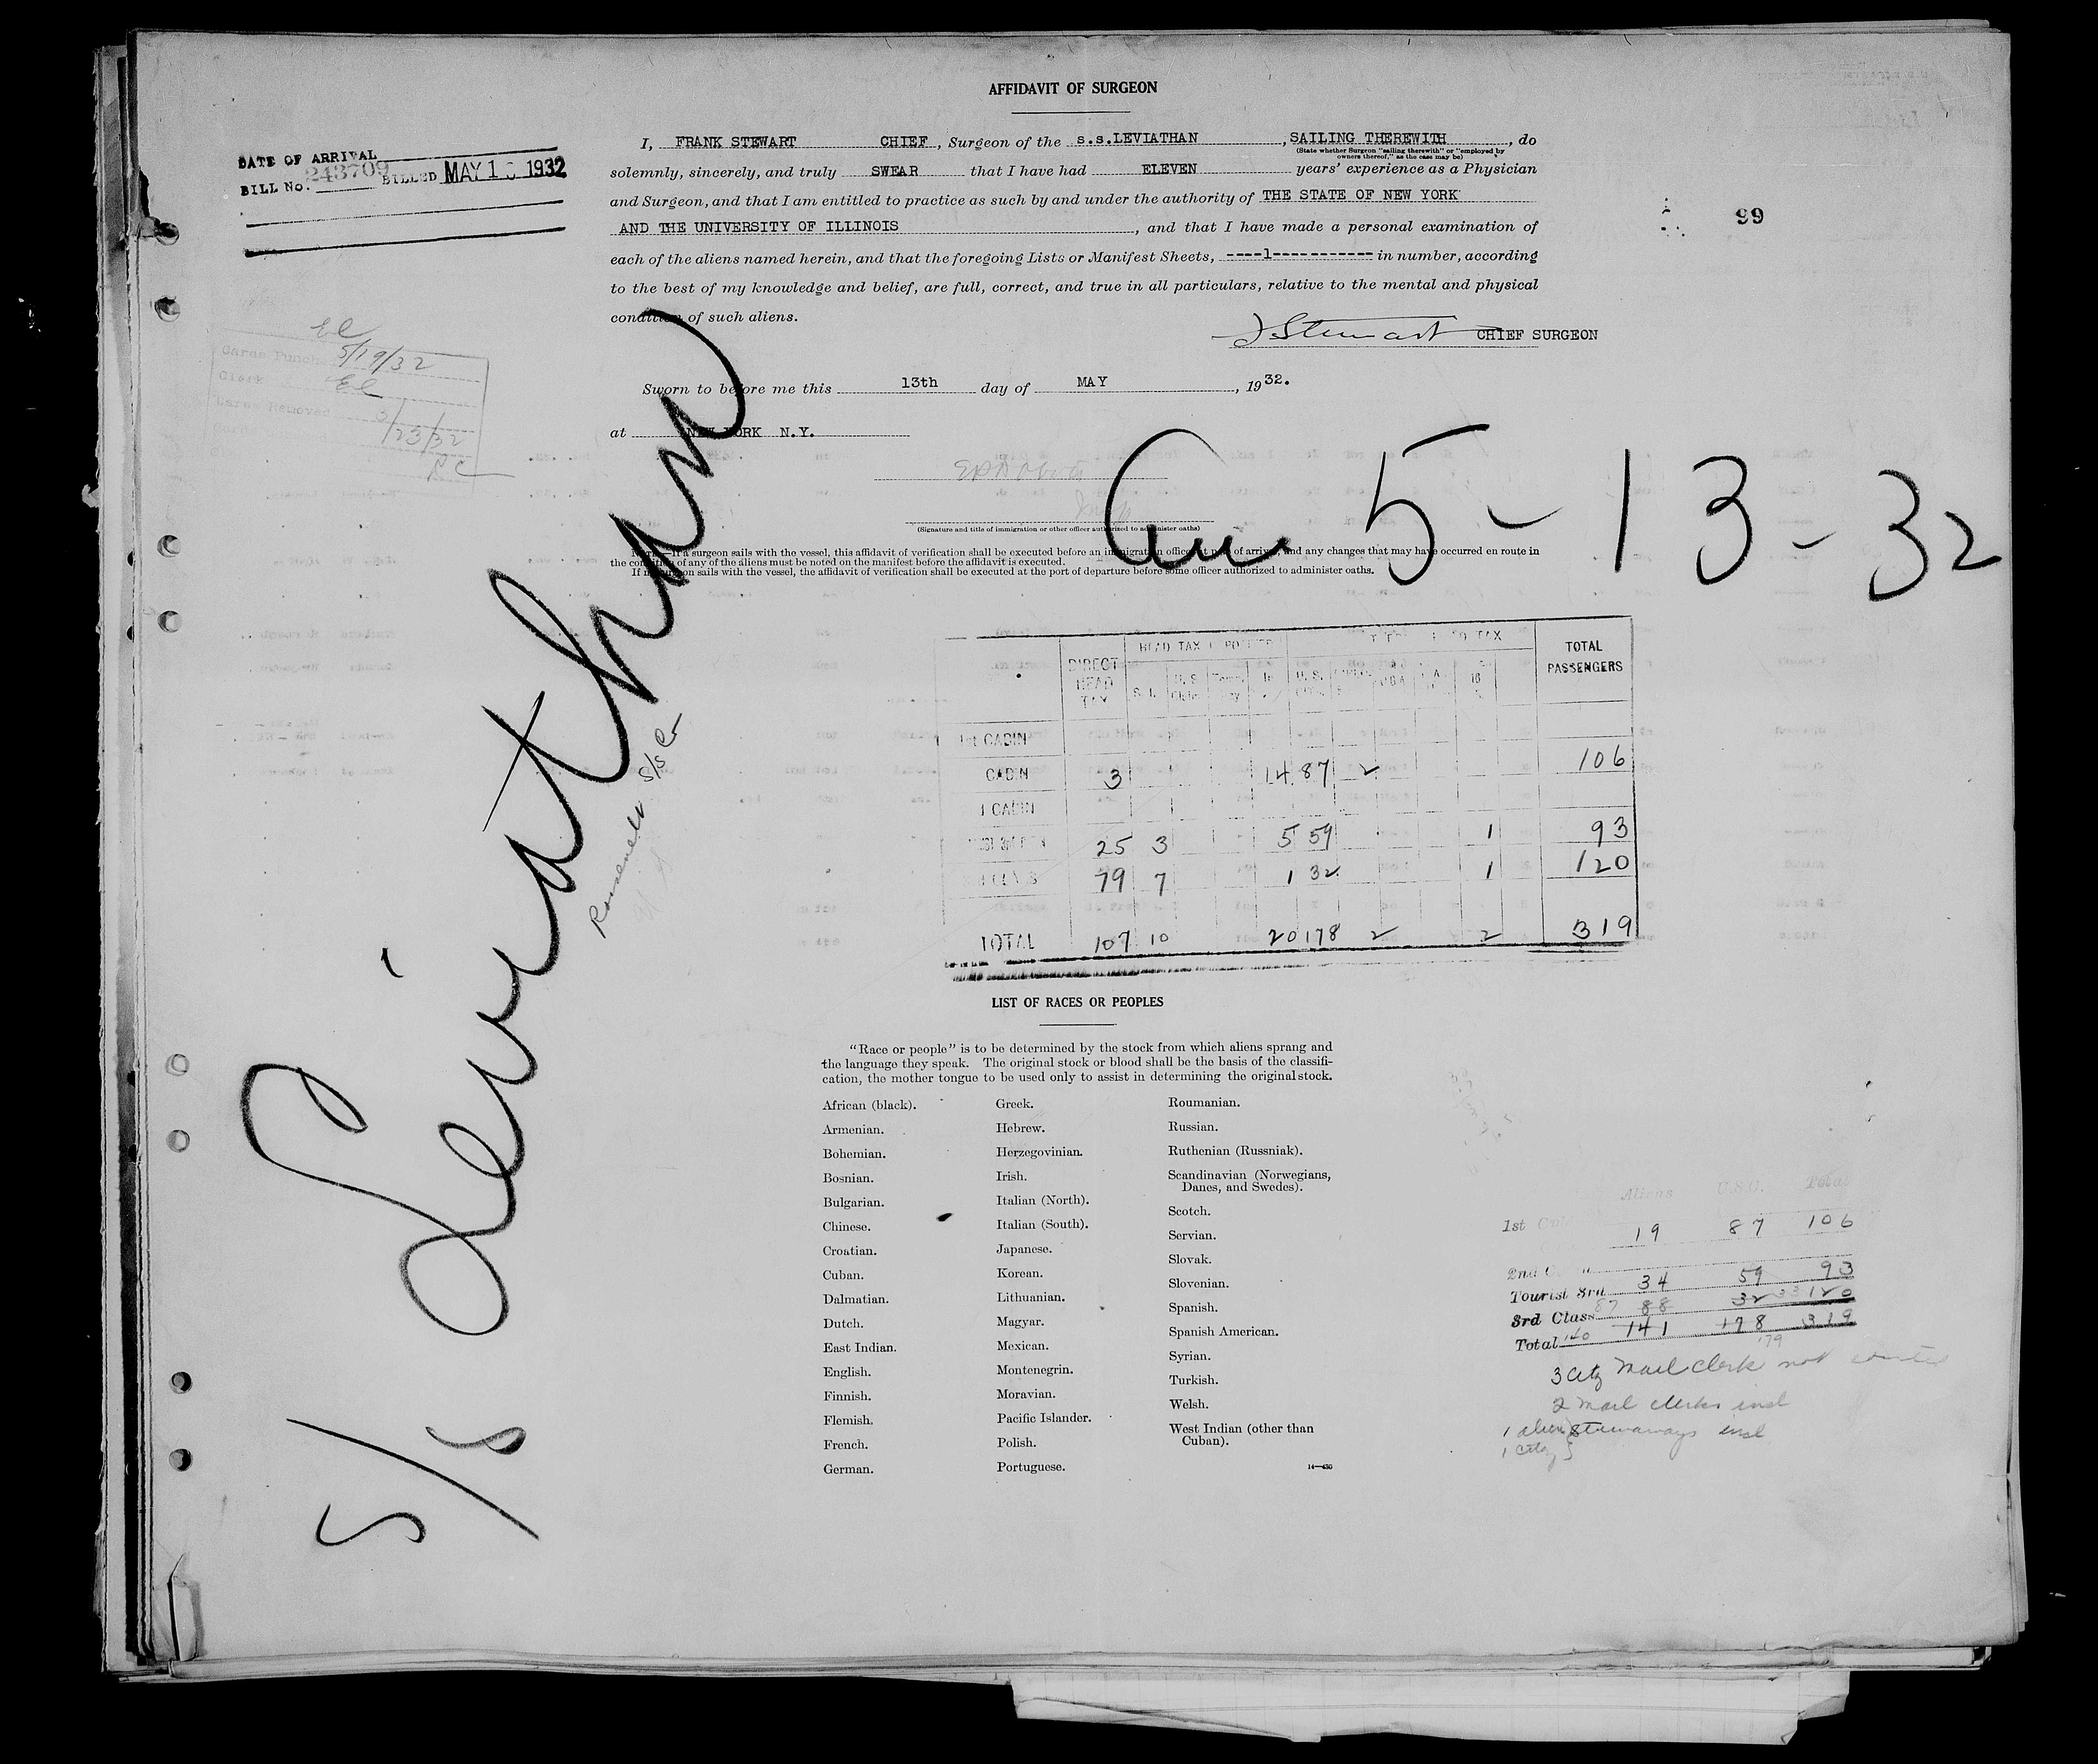 AFFIDAVIT OF SURGEON
DATE OF ARRIVAL
BILL No. 243709 BILLED MAY 1 1932
I, FRANK STEWART CHIEF, Surgeon of the s.s.LEVIATHAN, SAILING THEREWITH, do
(State whether Surgeon "sailing therewith" or "employed by
owners thereof," as the case may be)
solemnly, sincerely, and truly SWEAR that I have had ELEVEN years' experience as a Physician
and Surgeon, and that I am entitled to practice as such by and under the authority of THE STATE OF NEW YORK
AND THE UNIVERSITY OF ILLINOIS, and that I have made a personal examination of
each of the aliens named herein, and that the foregoing Lists or Manifest Sheets, ----1----------- in number, according
to the best of my knowledge and belief, are full, correct, and true in all particulars, relative to the mental and physical
condition of such aliens.
99
Stewart CHIEF SURGEON
Sworn to before me this 13th day of MAY, 1932.
at NEW YORK N.Y.
El
Cards Punched 5/19/32
Clerk El
Cards Removed 5/23/32
(Signature and title of immigration or other officer authorized to administer oaths)
5-13-32
NOTE.—If a surgeon sails with the vessel, this affidavit of verification shall be executed before an immigration officer at port of arrival, and any changes that may have occurred en route in
the condition of any of the aliens must be noted on the manifest before the affidavit is executed.
If no surgeon sails with the vessel, the affidavit of verification shall be executed at the port of departure before some officer authorized to administer oaths.
S/S Leviathan
Roosevelt S/S Co
DIRECT HEAD TAX HEAD TAX TAX TOTAL PASSENGERS
1st CABIN
CABIN 3 14 87 2 106
CABIN
25 3 5 59 1 93
79 7 1 32 1 120
TOTAL 107 10 20 178 2 2 319
LIST OF RACES OR PEOPLES
"Race or people" is to be determined by the stock from which aliens sprang and
the language they speak. The original stock or blood shall be the basis of the classifi-
cation, the mother tongue to be used only to assist in determining the original stock.
African (black).
Armenian.
Bohemian.
Bosnian.
Bulgarian.
Chinese.
Croatian.
Cuban.
Dalmatian.
Dutch.
East Indian.
English.
Finnish.
Flemish.
French.
German.
Greek.
Hebrew.
Herzegovinian.
Irish.
Italian (North).
Italian (South).
Japanese.
Korean.
Lithuanian.
Magyar.
Mexican.
Montenegrin.
Moravian.
Pacific Islander.
Polish.
Portuguese.
Roumanian.
Russian.
Ruthenian (Russniak).
Scandinavian (Norwegians,
Danes, and Swedes).
Scotch.
Servian.
Slovak.
Slovenian.
Spanish.
Spanish American.
Syrian.
Turkish.
Welsh.
West Indian (other than
Cuban).
14—436
Aliens U.S.C. Total
1st 19 87 106
2nd C "
Tourist 3rd 34 59 93
3rd Class 87 88 32 33 120
Total 140 141 178 319
179
3 Citz Mail Clerk not
2 mail clerks incl
1 alien } stowaways incl
1 citz }